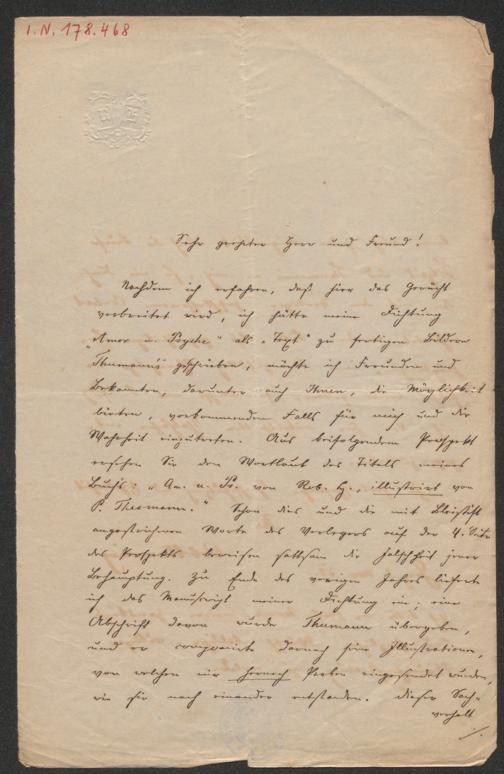 I.N. 178.468
Sehr geehrter Herr und Freund!
Nachdem ich erfahren, daß hier das Gerücht
verbreitet wird, ich hätte meine Dichtung
„Amor u. Psyche" als „Text" zu fertigen Bildern
Thumann's geschrieben, möchte ich Freunden und
Bekannten, darunter auch Ihnen, die Möglichkeit
bieten, vorkommenden Falls für mich und die
Wahrheit einzutreten. Aus beifolgendem Prospekt
ersehen Sie den Wortlaut des Titels meines
Buchs: „Am. u. Ps. von Rob. H., illustrirt von
P. Thumann." Schon dies und die mit Bleistift
angestrichenen Worte des Verlegers auf der 4. Seite
des Prospekts beweisen sattsam die Falschheit jener
Behauptung. Zu Ende des vorigen Jahres lieferte
ich das Manuscript meiner Dichtung ein; eine
Abschrift davon wurde Thumann übergeben,
und er componirte darnach seine Illustrationen,
von welchen mir hernach Proben eingesendet wurden,
wie sie nach einander entstanden. Dieser Sach-
verhalt